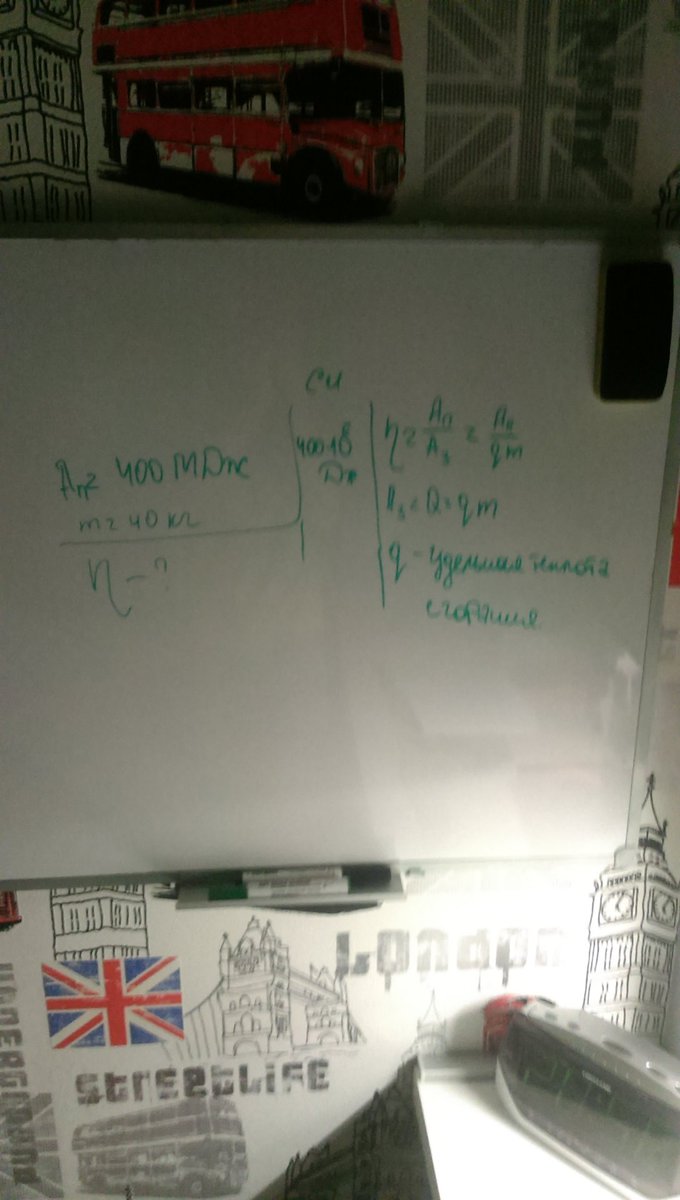 СИ
Aп = 400 МДж
m = 40 кг
η - ?
400 · 10⁶
Дж
η = Aп / Aз = Aп / qm
Aз = Q = qm
q - удельная теплота
сгорания
LONDON
STREETLIFE
UNDERGROUND